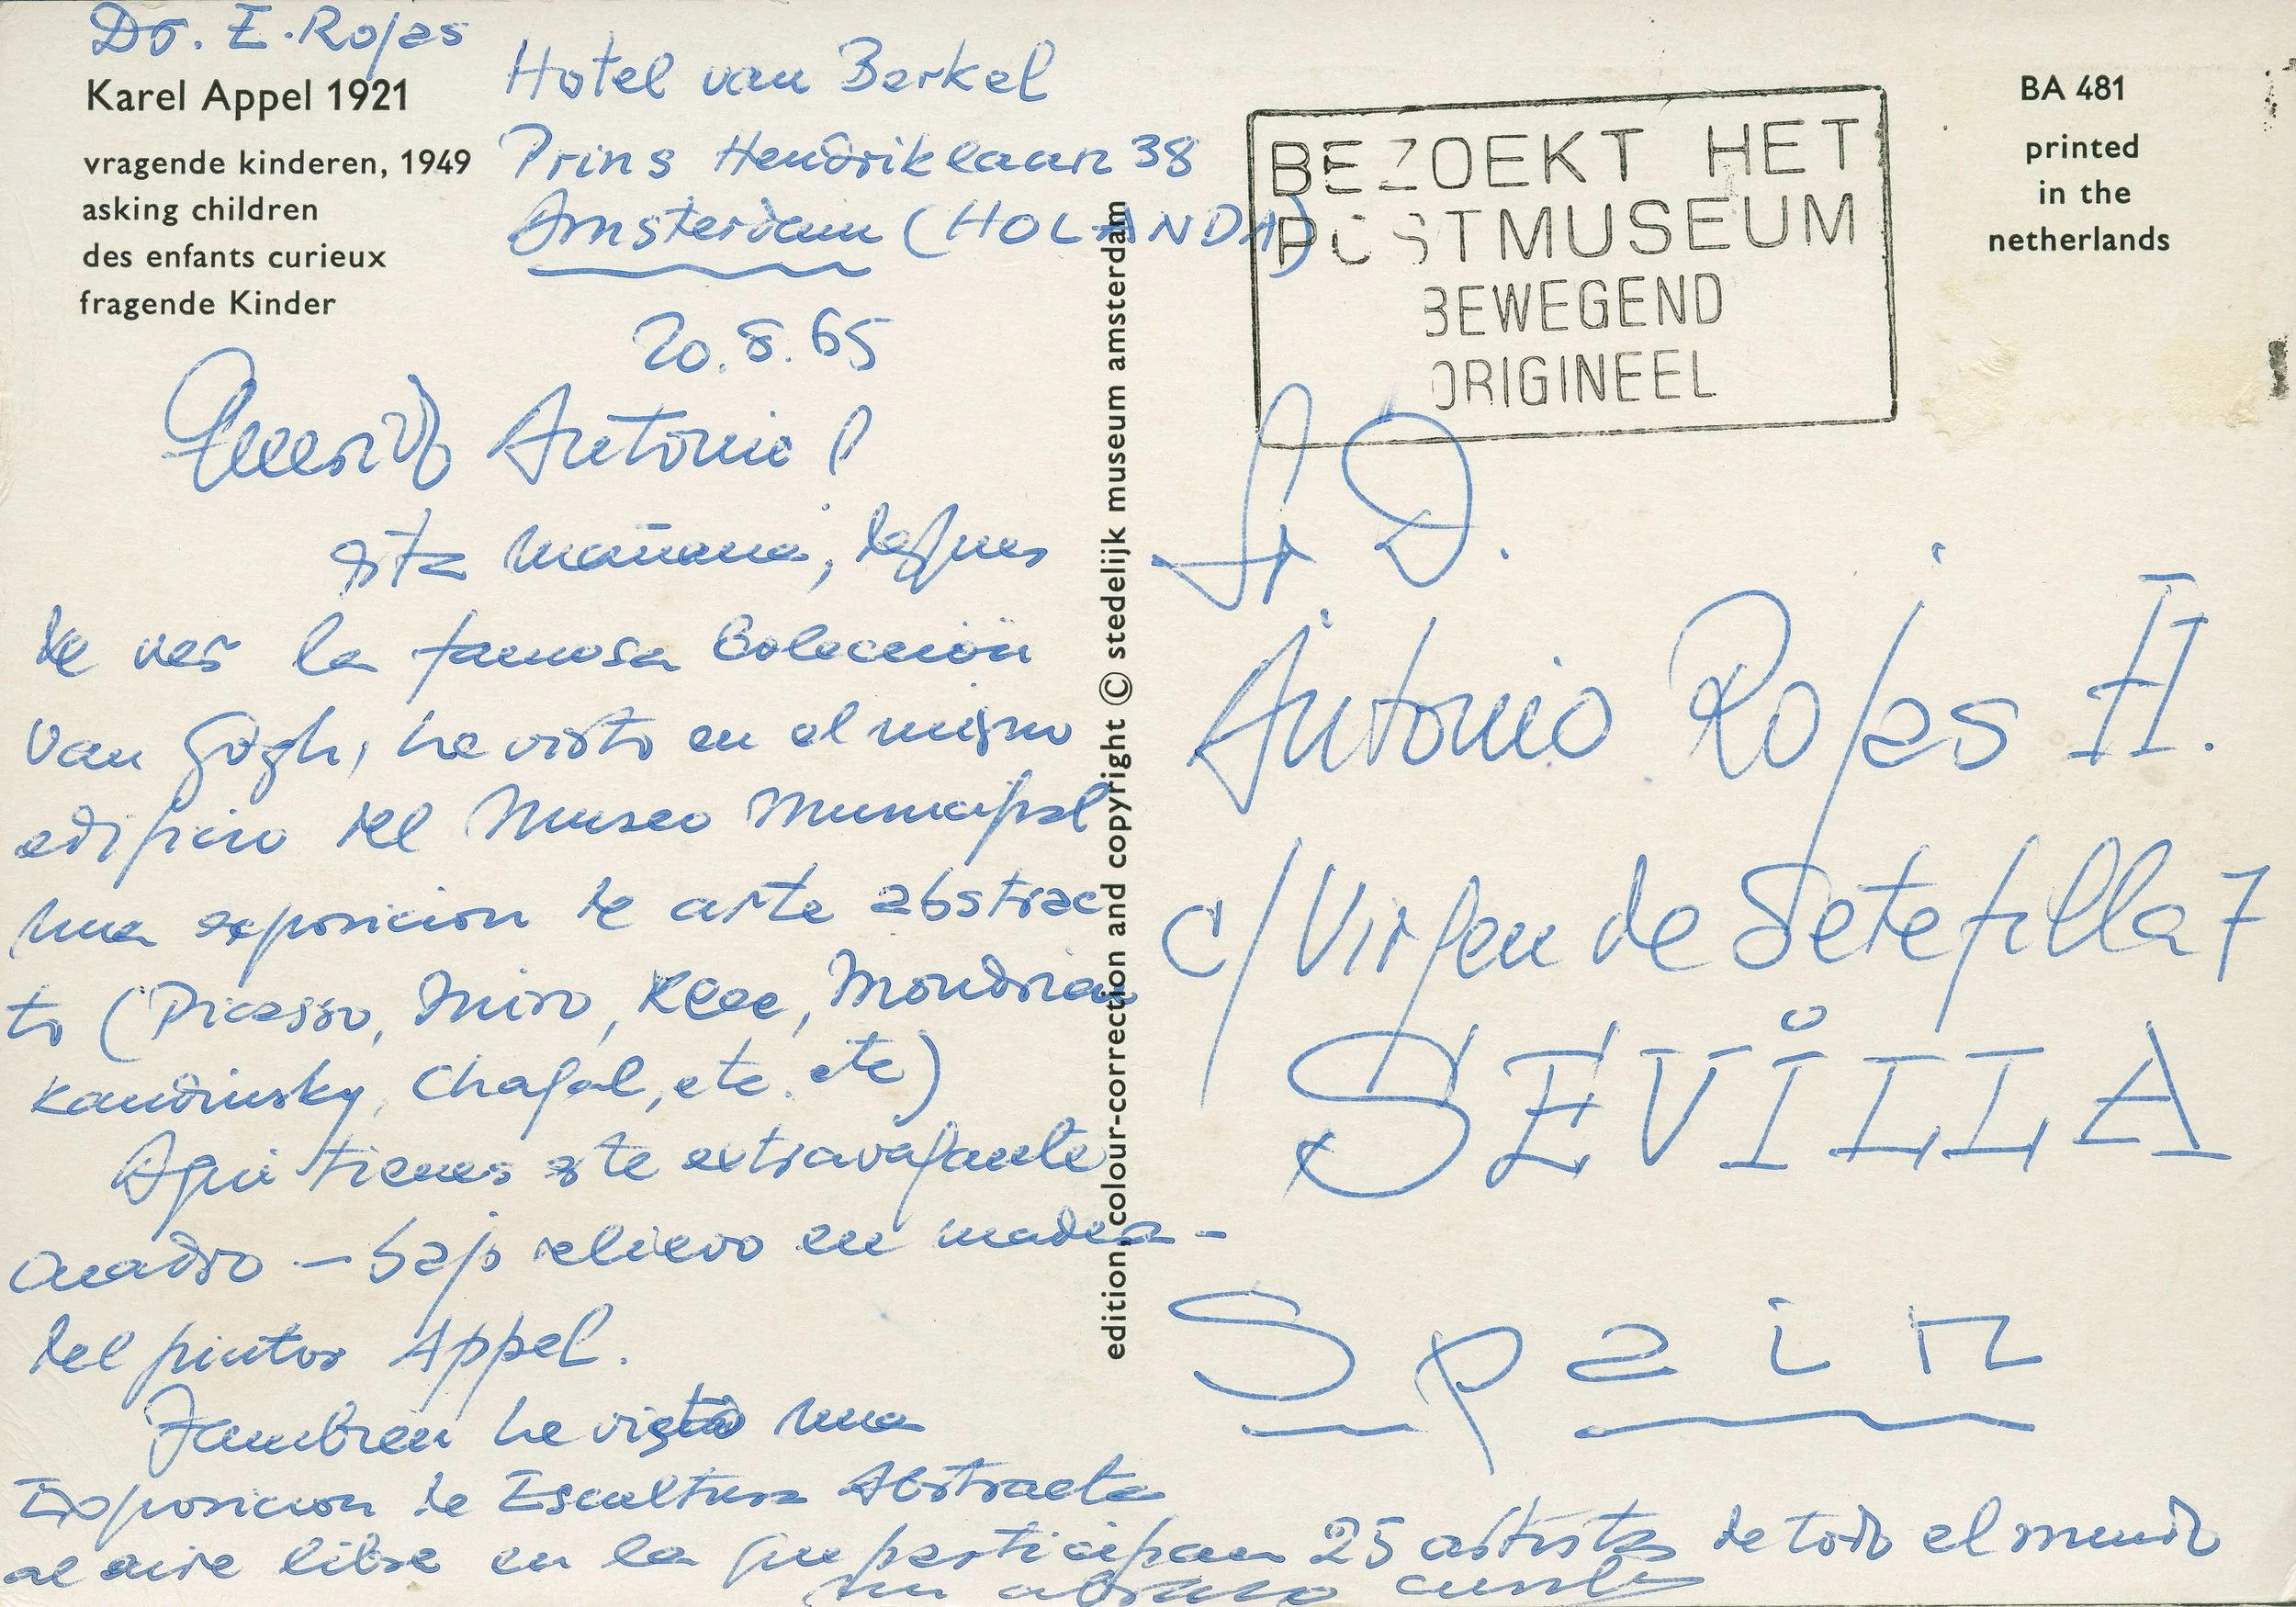 Dr. E. Rojas
Karel Appel 1921
vragende kinderen, 1949
asking children
des enfants curieux
fragende Kinder
Hotel van Berkel
Prins Hendriklaan 38
Amsterdam (HOLANDA)
20.8.65
Querido Antonio!
esta mañana, despues
de ver la famosa Colección
Van Gogh, he visto en el mismo
edificio del Museo Municipal
una exposicion de arte abstrac
to (Picasso, Miro, Klee, Mondrian
Kandinsky, Chagal, etc. etc)
Aqui tienes este extravagante
cuadro — bajo relievo en madera -
del pintor Appel.
Tambien he visto una
Exposicion de Escultura Abstracta
al aire libre en la que participan 25 artistas de todo el mundo
un abrazo
edition, colour-correction and copyright © stedelijk museum amsterdam
BEZOEKT HET
POSTMUSEUM
BEWEGEND
ORIGINEEL
BA 481
printed
in the
netherlands
Sr D.
Antonio Rojas H.
c/ Virgen de Setefilla 7
SEVILLA
Spain